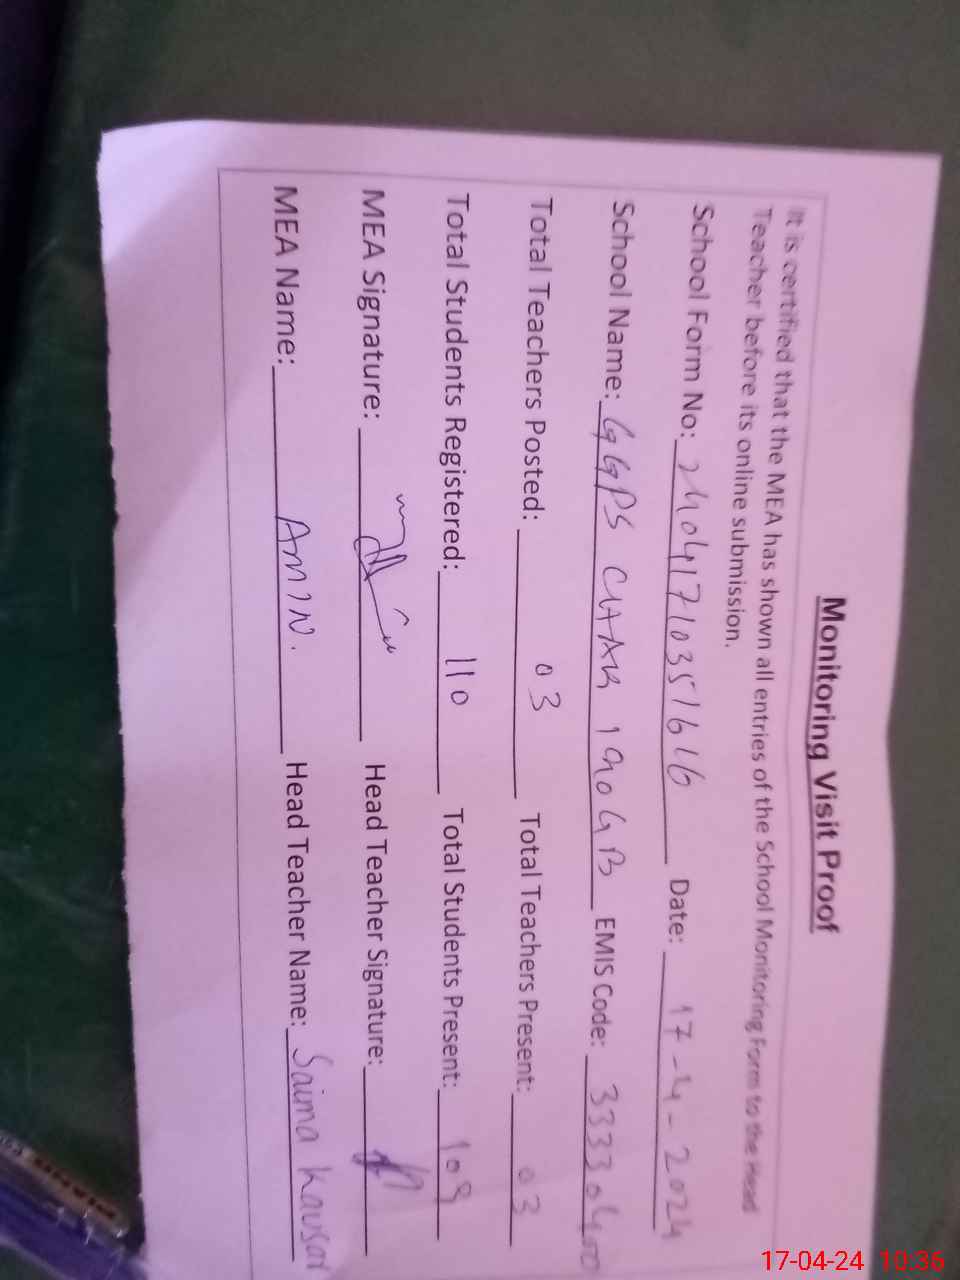 Monitoring Visit Proof
It is certified that the MEA has shown all entries of the School Monitoring Form to the Head
Teacher before its online submission.
School Form No: 24041710351616 Date: 17-4-2024
School Name: GGPS CHAK 190 GB EMIS Code: 33330400
Total Teachers Posted: 03 Total Teachers Present: 03
Total Students Registered: 110 Total Students Present: 109
MEA Signature: Head Teacher Signature:
MEA Name: AMIN. Head Teacher Name: Saima Kausar
PIANO
17-04-24 10:36